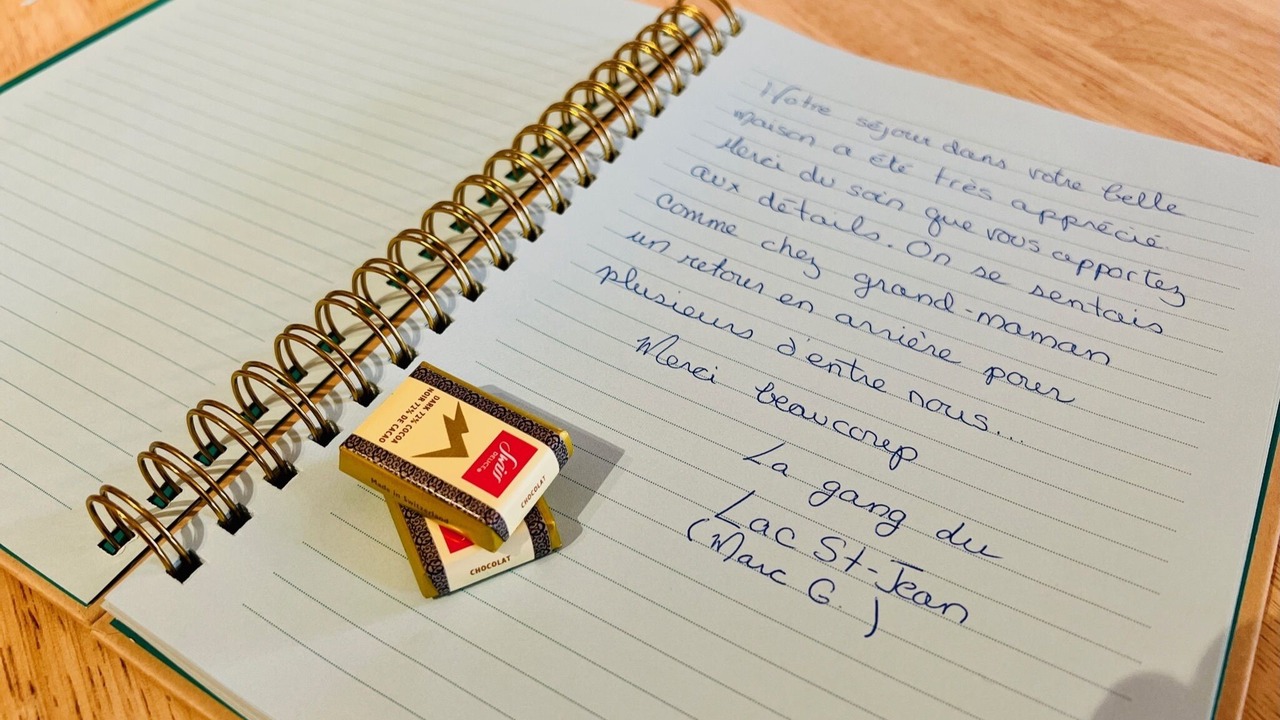 Notre séjour dans votre belle
maison a été très apprécié.
Merci du soin que vous apportez
aux détails. On se sentais
comme chez grand-maman
un retour en arrière pour
plusieurs d'entre nous...
Merci beaucoup
La gang du
Lac St-Jean
(Marc G.)
DARK 72% COCOA
NOIR 72% DE CACAO
Swiss
DELICE
CHOCOLAT
Made in Switzerland
CHOCOLAT